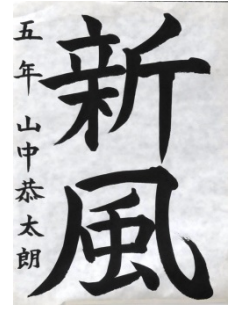 新風
五年 山中恭太朗